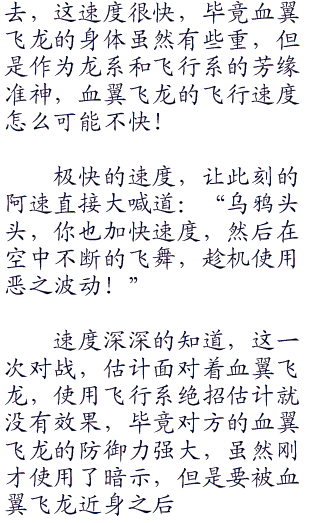 去，这速度很快，毕竟血翼
飞龙的身体虽然有些重，但
是作为龙系和飞行系的芳缘
准神，血翼飞龙的飞行速度
怎么可能不快！
极快的速度，让此刻的
阿速直接大喊道：“乌鸦头
头，你也加快速度，然后在
空中不断的飞舞，趁机使用
恶之波动！”
速度深深的知道，这一
次对战，估计面对着血翼飞
龙，使用飞行系绝招估计就
没有效果，毕竟对方的血翼
飞龙的防御力强大，虽然刚
才使用了暗示，但是要被血
翼飞龙近身之后